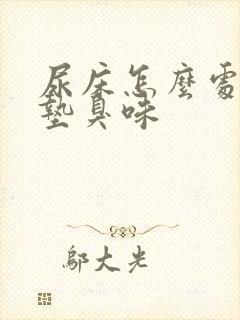 尿床怎麼處
墊臭味
鄔大光